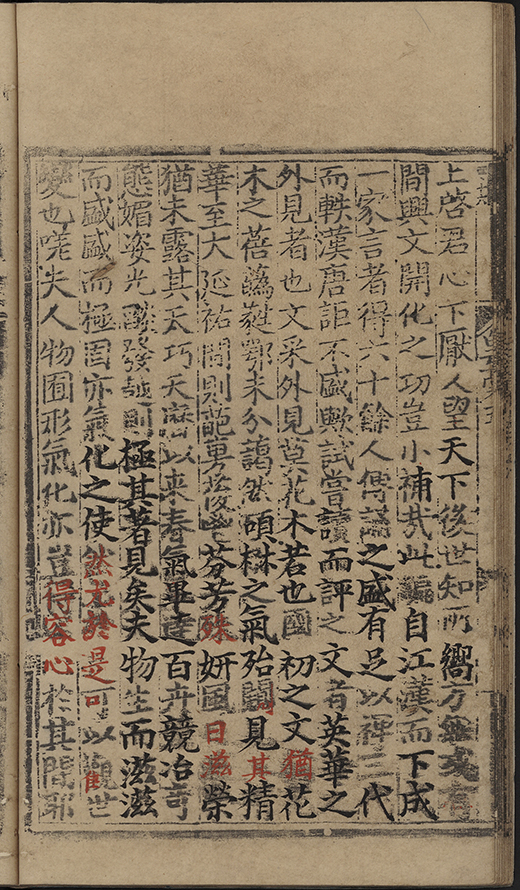 上啓君心下厭人望天下後世知所嚮方無或有
間興文開化之功豈小補哉此編自江漢而下成
一家言者得六十餘人傳誦之盛有足以裨三代
而軼漢唐詎不盛歟試嘗讀而評之文者英華之
外見者也文采外見莫花木若也國初之文猶花
木之蓓蕾蕤鄂未分藹然碩樹之氣殆闖見其精
華至大延祐間則葩萼芬芳殊妍國日滋榮
猶未露其天巧天曆以來春氣畢達百卉競冶奇
態媚姿光發越則極其著見矣夫物生而滋滋
而盛盛而極固亦氣化之使然尤於是可以觀世
變也嗟夫人物囿形氣化亦豈得容心於其間耶